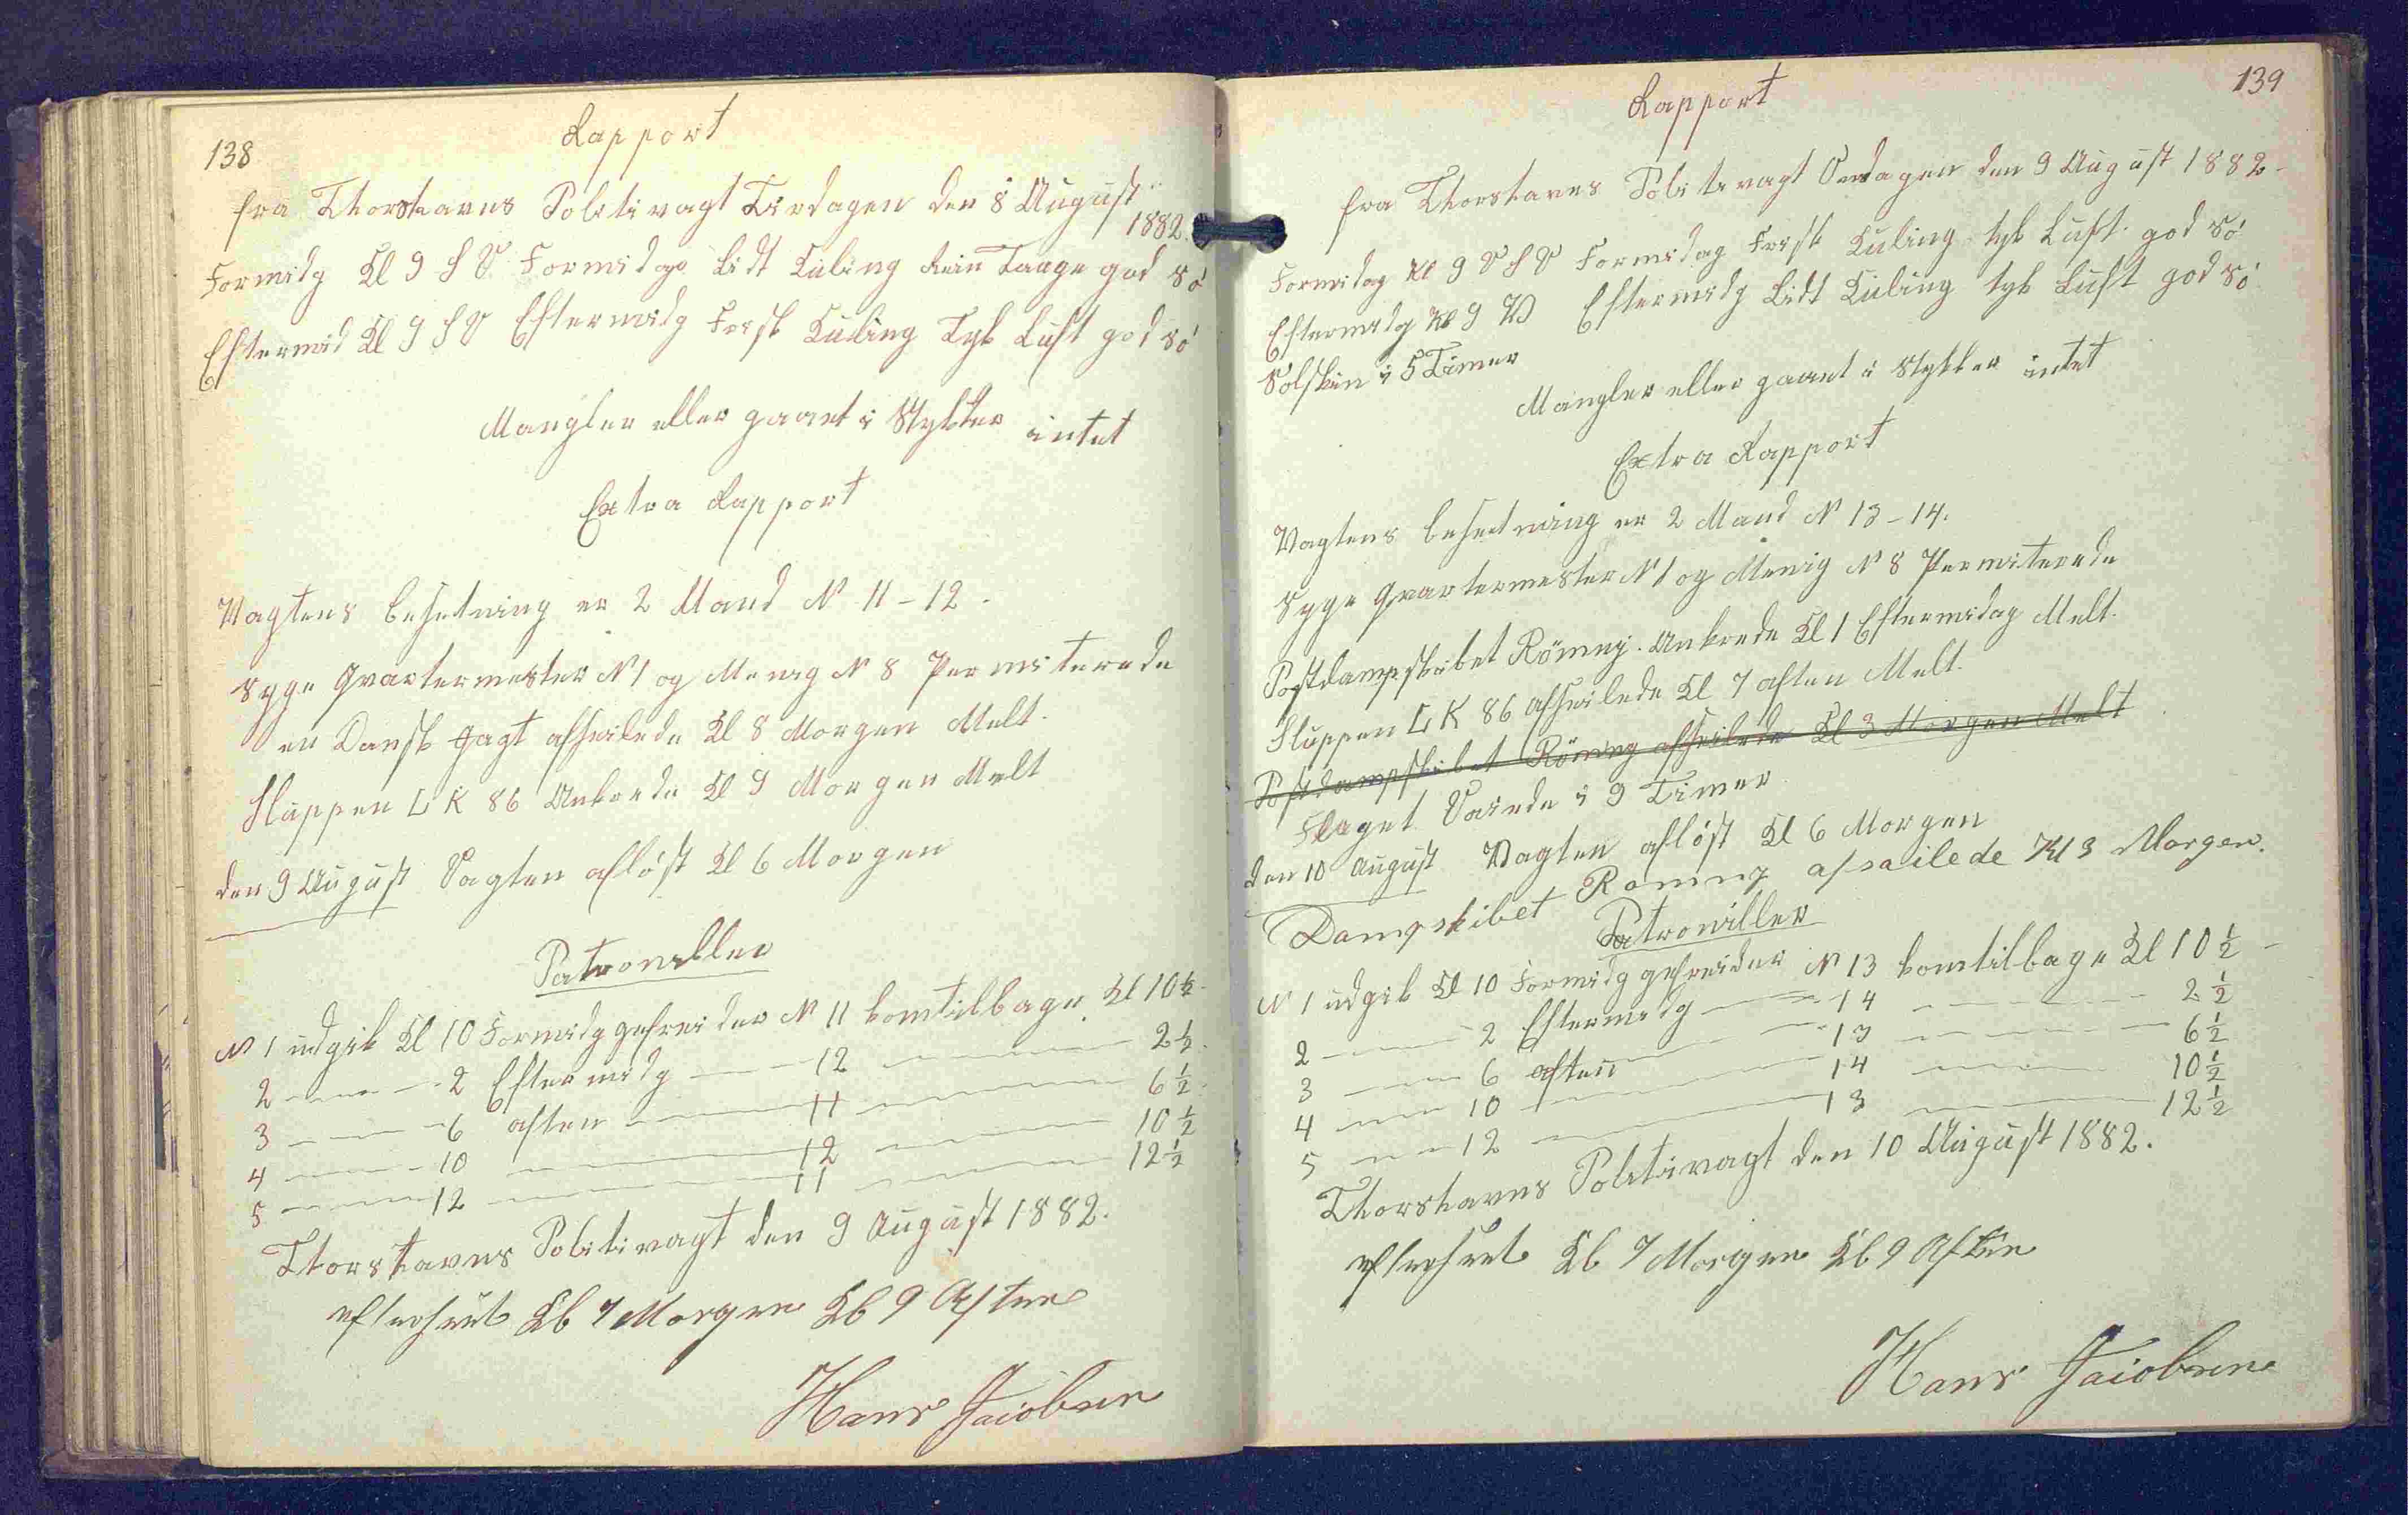 138
Rapport
fra Thorshavns Politivagt Tirdagen den 8 August
1882.
Formidg Kl 9 S V Formidg Lidt Kuling Rein Taage god Sö
Eftermid Kl 9 S V Eftermidg Frisk Kuling Tyk Luft god Sö
Mangler eller gaaet i Stykker intet
Extra Rapport
Vagtens besetning er 2 Mand N 11 - 12 -
Syge Qvartermester N 1 og Menig N 8 Permiterede
en Dansk Jagt afseilede Kl 8 Morgen Melt.
Sluppen L K 86 Ankrede Kl 9 Morgen Melt
den 9 August Vagten aflöst Kl 6 Morgen
Patrouiller
N 1 udgik Kl 10 Formidg gefreider N 11 komtilbage Kl 10 ½
2 — 2 Eftermidg — 12 — 2 ½
3 — 6 aften — 11 — 6 ½
4 — 10 — 12 — 10 ½
5 — 12 — 11 — 12 ½
Thorshavns Politivagt den 9 August 1882.
efterseet Kl 7 Morgen Kl 9 Aften
Hans Jacobsen
139
Rapport
fra Thorshavns Politivagt Onsdagen den 9 August 1882 -
Formidag Kl 9 V S V Formidag Frisk Kuling tyk Luft god Sö
Eftermidg Kl 9 V Eftermidg Lidt Kuling tyk Luft god Sö
Solskin i 5 Timer
Mangler eller gaaet i Stykker intet
Extra Rapport
Vagtens besetning er 2 Mand N 13 - 14.
Syge Qvartermester N 1 og Menig N 8 Permiterede
Postdampskibet Römny Ankrede Kl 1 Eftermidag Melt.
Sluppen L K 86 afseilede Kl 7 aften Melt.
Postdampskibet Römny afseilede Kl 3 Morgen Melt
Flaget Vaiede i 9 Timer
den 10 August Vagten aflöst Kl 6 Morgen
Dampskibet Romny afsailede Kl 3 Morgen.
Patrouiller
N 1 udgik Kl 10 Formidg gefreider N 13 komtilbage Kl 10 ½ -
2 — 2 Eftermidg — 14 — 2 ½
3 — 6 aften — 13 — 6 ½
4 — 10 — 14 — 10 ½
5 — 12 — 13 — 12 ½
Thorshavns Politivagt den 10 August 1882.
efterseet Kl 7 Morgen Kl 9 Aften
Hans Jacobsen